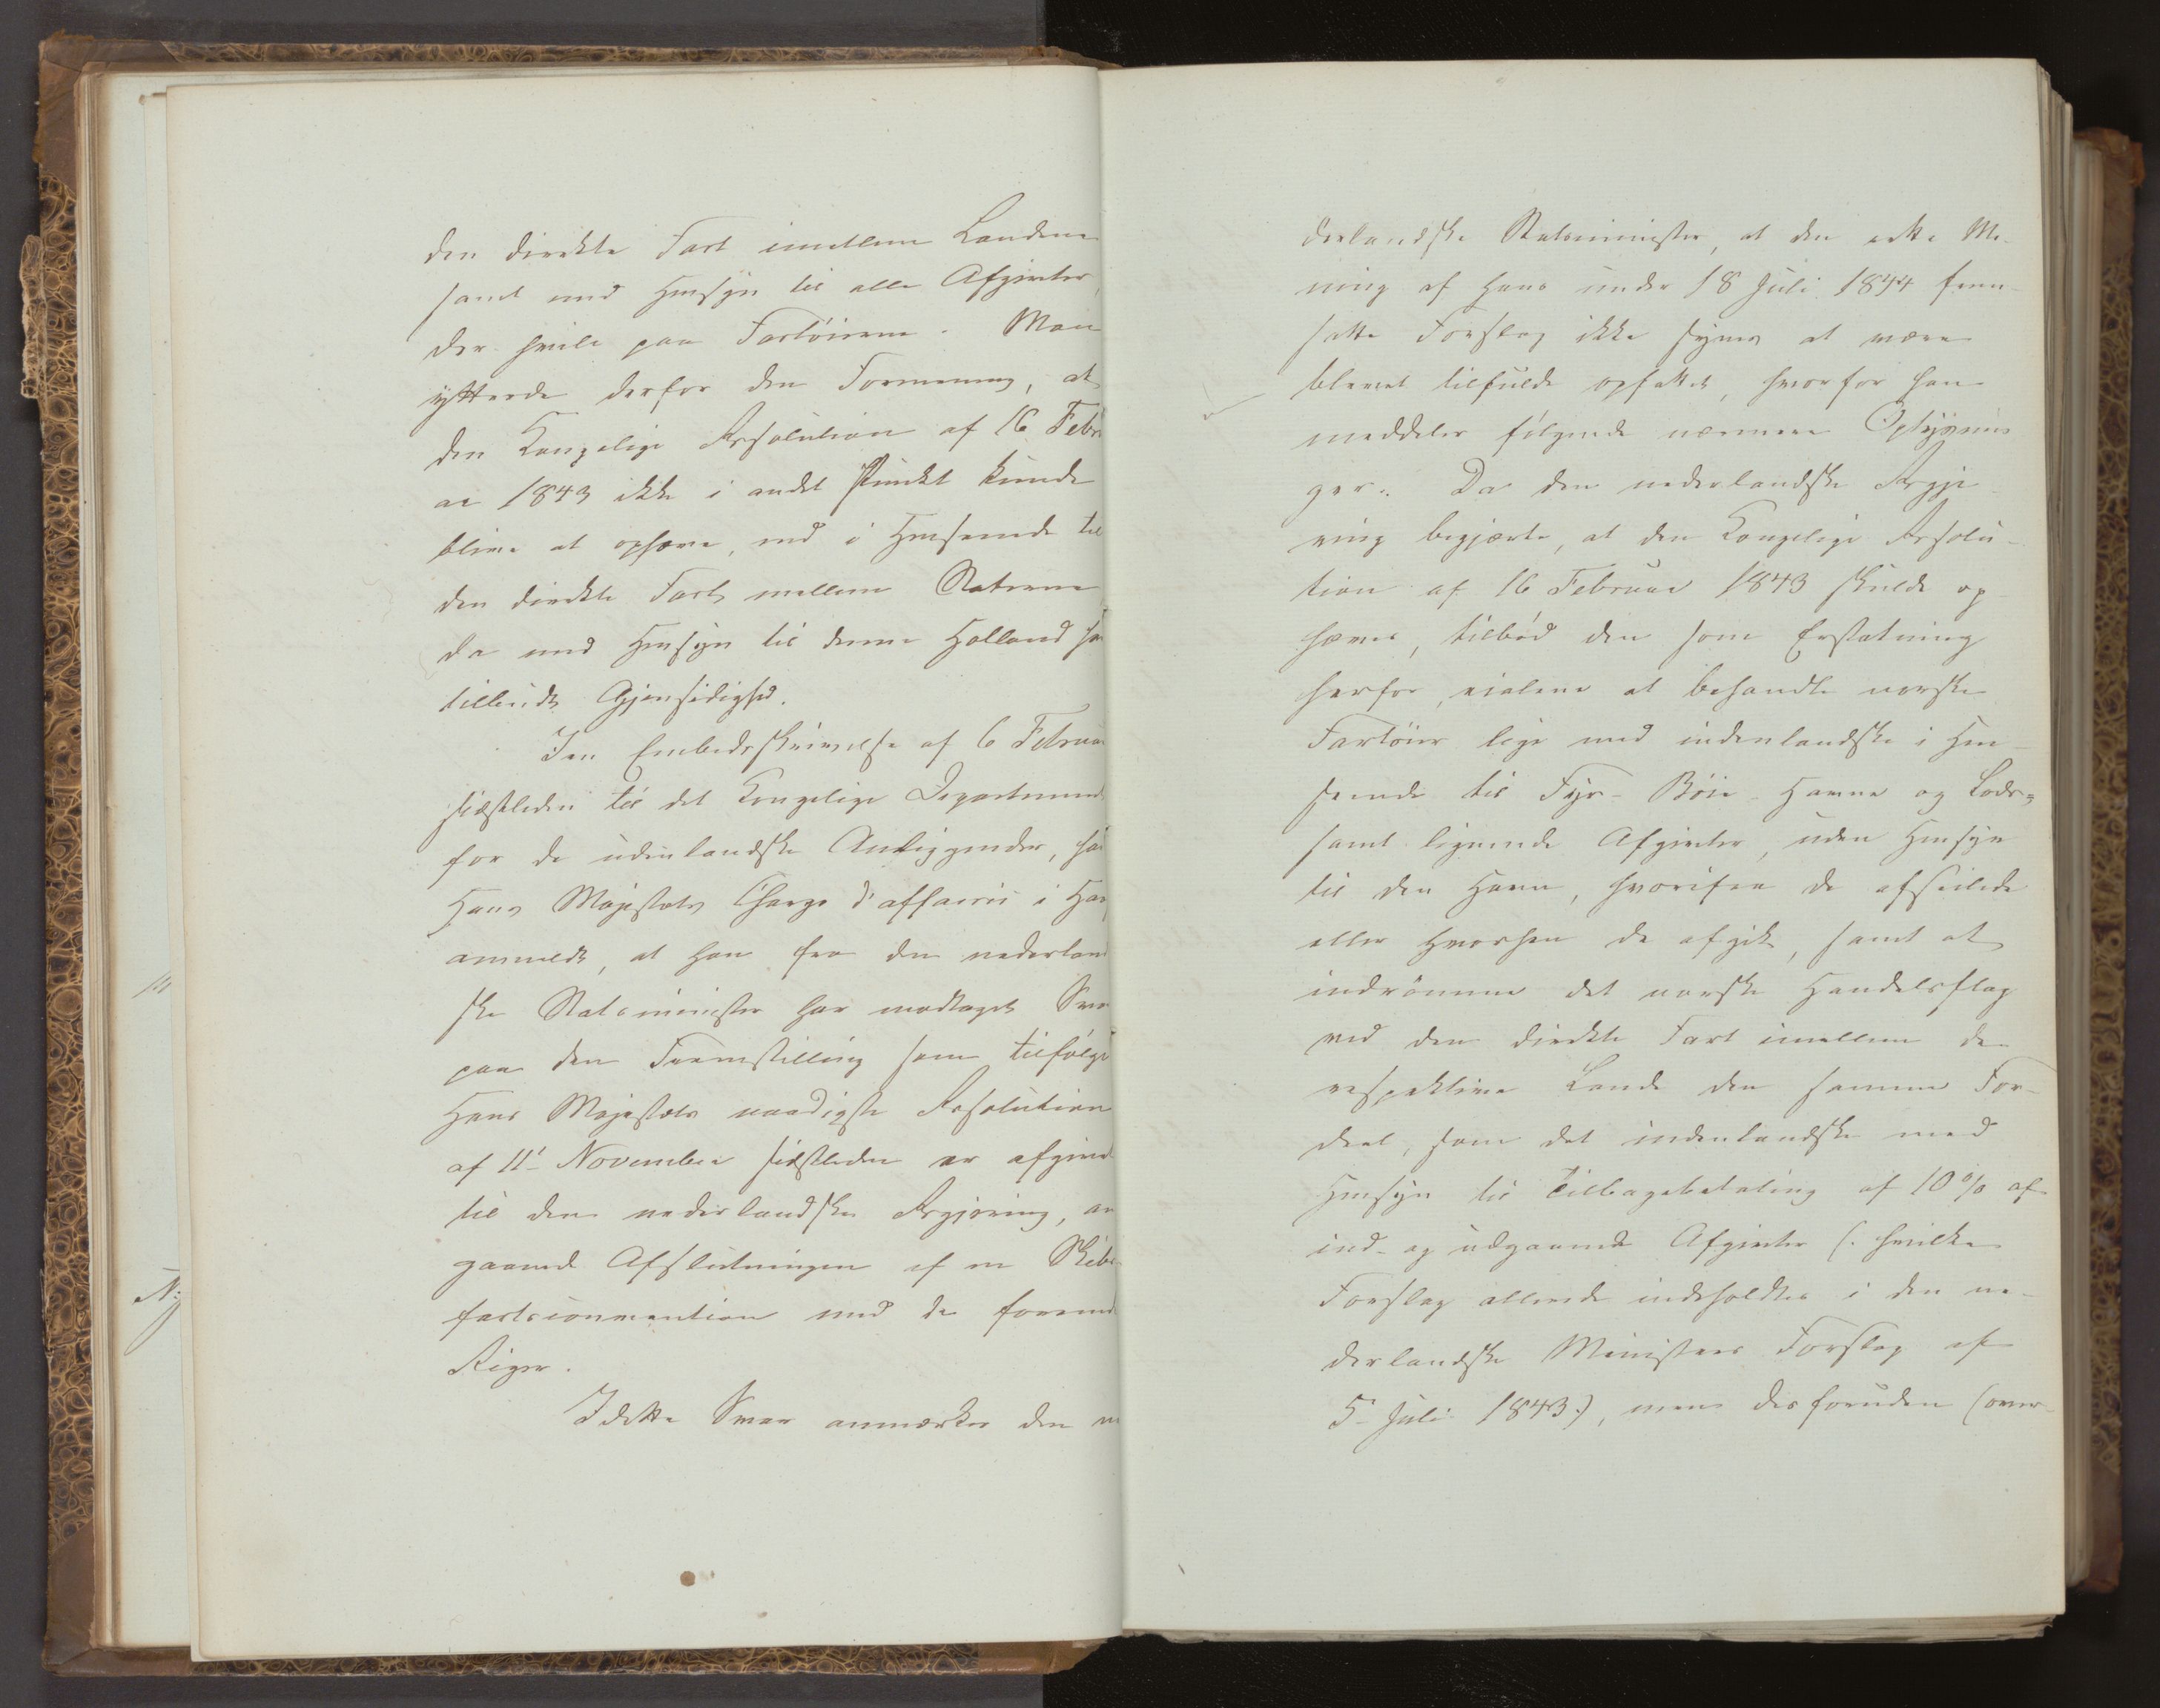 den direkte Fart imellem Landene
samt med Hensyn til alle Afgivter,
der hvile paa Fartöierne. Man
yttrede derfor den Formening, at
den Kongelige Resolution af 16 Febr
ar 1843 ikke i andet Punkt kunde
blive at ophæve, end i Henseende til
den direkte Fart mellem Staterne
da med Hensyn til denne Holland har
tilbudt Gjensidighed.
I en Embedsskrivelse af 6 Februar
sidstleden til det Kongelige Departement
for de udenlandske Anliggender, har
Hans Majestæts Chargé d'affaires i Haag
anmeldt, at han fra den nederland
ske Statsminister har modtaget Svar
paa den Fremstilling som tilfølge
Hans Majestæts naadigste Resolution
af 11te November sidstleden er afgivet
til den nederlandske Regjering, an
gaaende Afslutningen af en Skibs
fartsconvention med de forenede
Riger.
I dette Svar anmærker den ne
derlandske Statsminister, at den rette Me-
ning af hans under 18 Juli 1844 frem-
satte Forslag ikke synes at være
blevet tilfulde opfattet, hvorfor han
meddeler følgende nærmere Oplysnin
ger. Da den nederlandske Regje-
ring begjærte, at den Kongelige Resolu-
tion af 16 Februar 1843 skulde op-
hæves, tilbød den som Erstatning
herfor, at behandle norske
Fartöier lige med indenlandske i Hen-
seende til Fyr- Böie- Havne og Lods-
samt lignende Afgivter, uden Hensyn
til den Havn, hvorifra de afseilede
eller hvorhen de afgik, samt at
indrömme det norske Handelsflag
ved den direkte Fart imellem de
respektive Lande den samme For-
deel, som det indenlandske med
Hensyn til Tilbagebetaling af 10 % af
ind- og udgaaende Afgivter (: hvilke
Forslag allerede indeholdtes i den ne-
derlandske Ministers Forslag af
5 Juli 1843:), men desforuden (over-